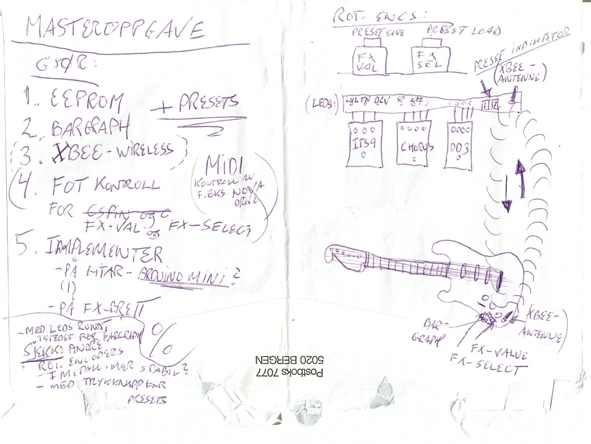 MASTEROPPGAVE
GJØR:
1. EEPROM + PRESETS
2. BARGRAPH
3. XBEE-WIRELESS
4. FOT KONTROLL
FOR
FX-VAL og FX-SELECT
MIDI
KONTROLL AV
F.EKS NOVA
DRIVE
5. IMPLEMENTER
- PÅ HTAR - ARDUINO MINI?
(1)
- PÅ FX-BRETT
- MED LEDS RUNDT
ISTEDET FOR BARGRAPH
SJEKK: ANDRE
ROT. ENCODERS
I METALL - MER STABIL?
- MED TRYKKNAPP FOR
PRESETS
%
Postboks 7077
5020 BERGEN
ROT. ENCS.:
PRESET SAVE PRESET LOAD
FX VAL
FX SEL
PRESET INDIKATOR
XBEE-
ANTENNE)
(LEDS:
ITS9
CHORUS
OD3
BAR-
GRAPH
XBEE-
ANTENNE
FX-VALUE
FX-SELECT